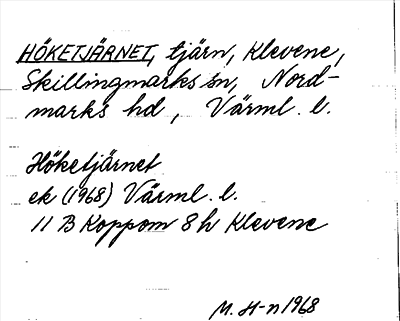 HÖKETJÄRNET, tjärn, Klevene,
Skillingmarks sn, Nord-
marks hd, Värml. l.
Höketjärnet
ek (1968) Värml. l.
11 B Koppom 8 h Klevene
M. H-n 1968